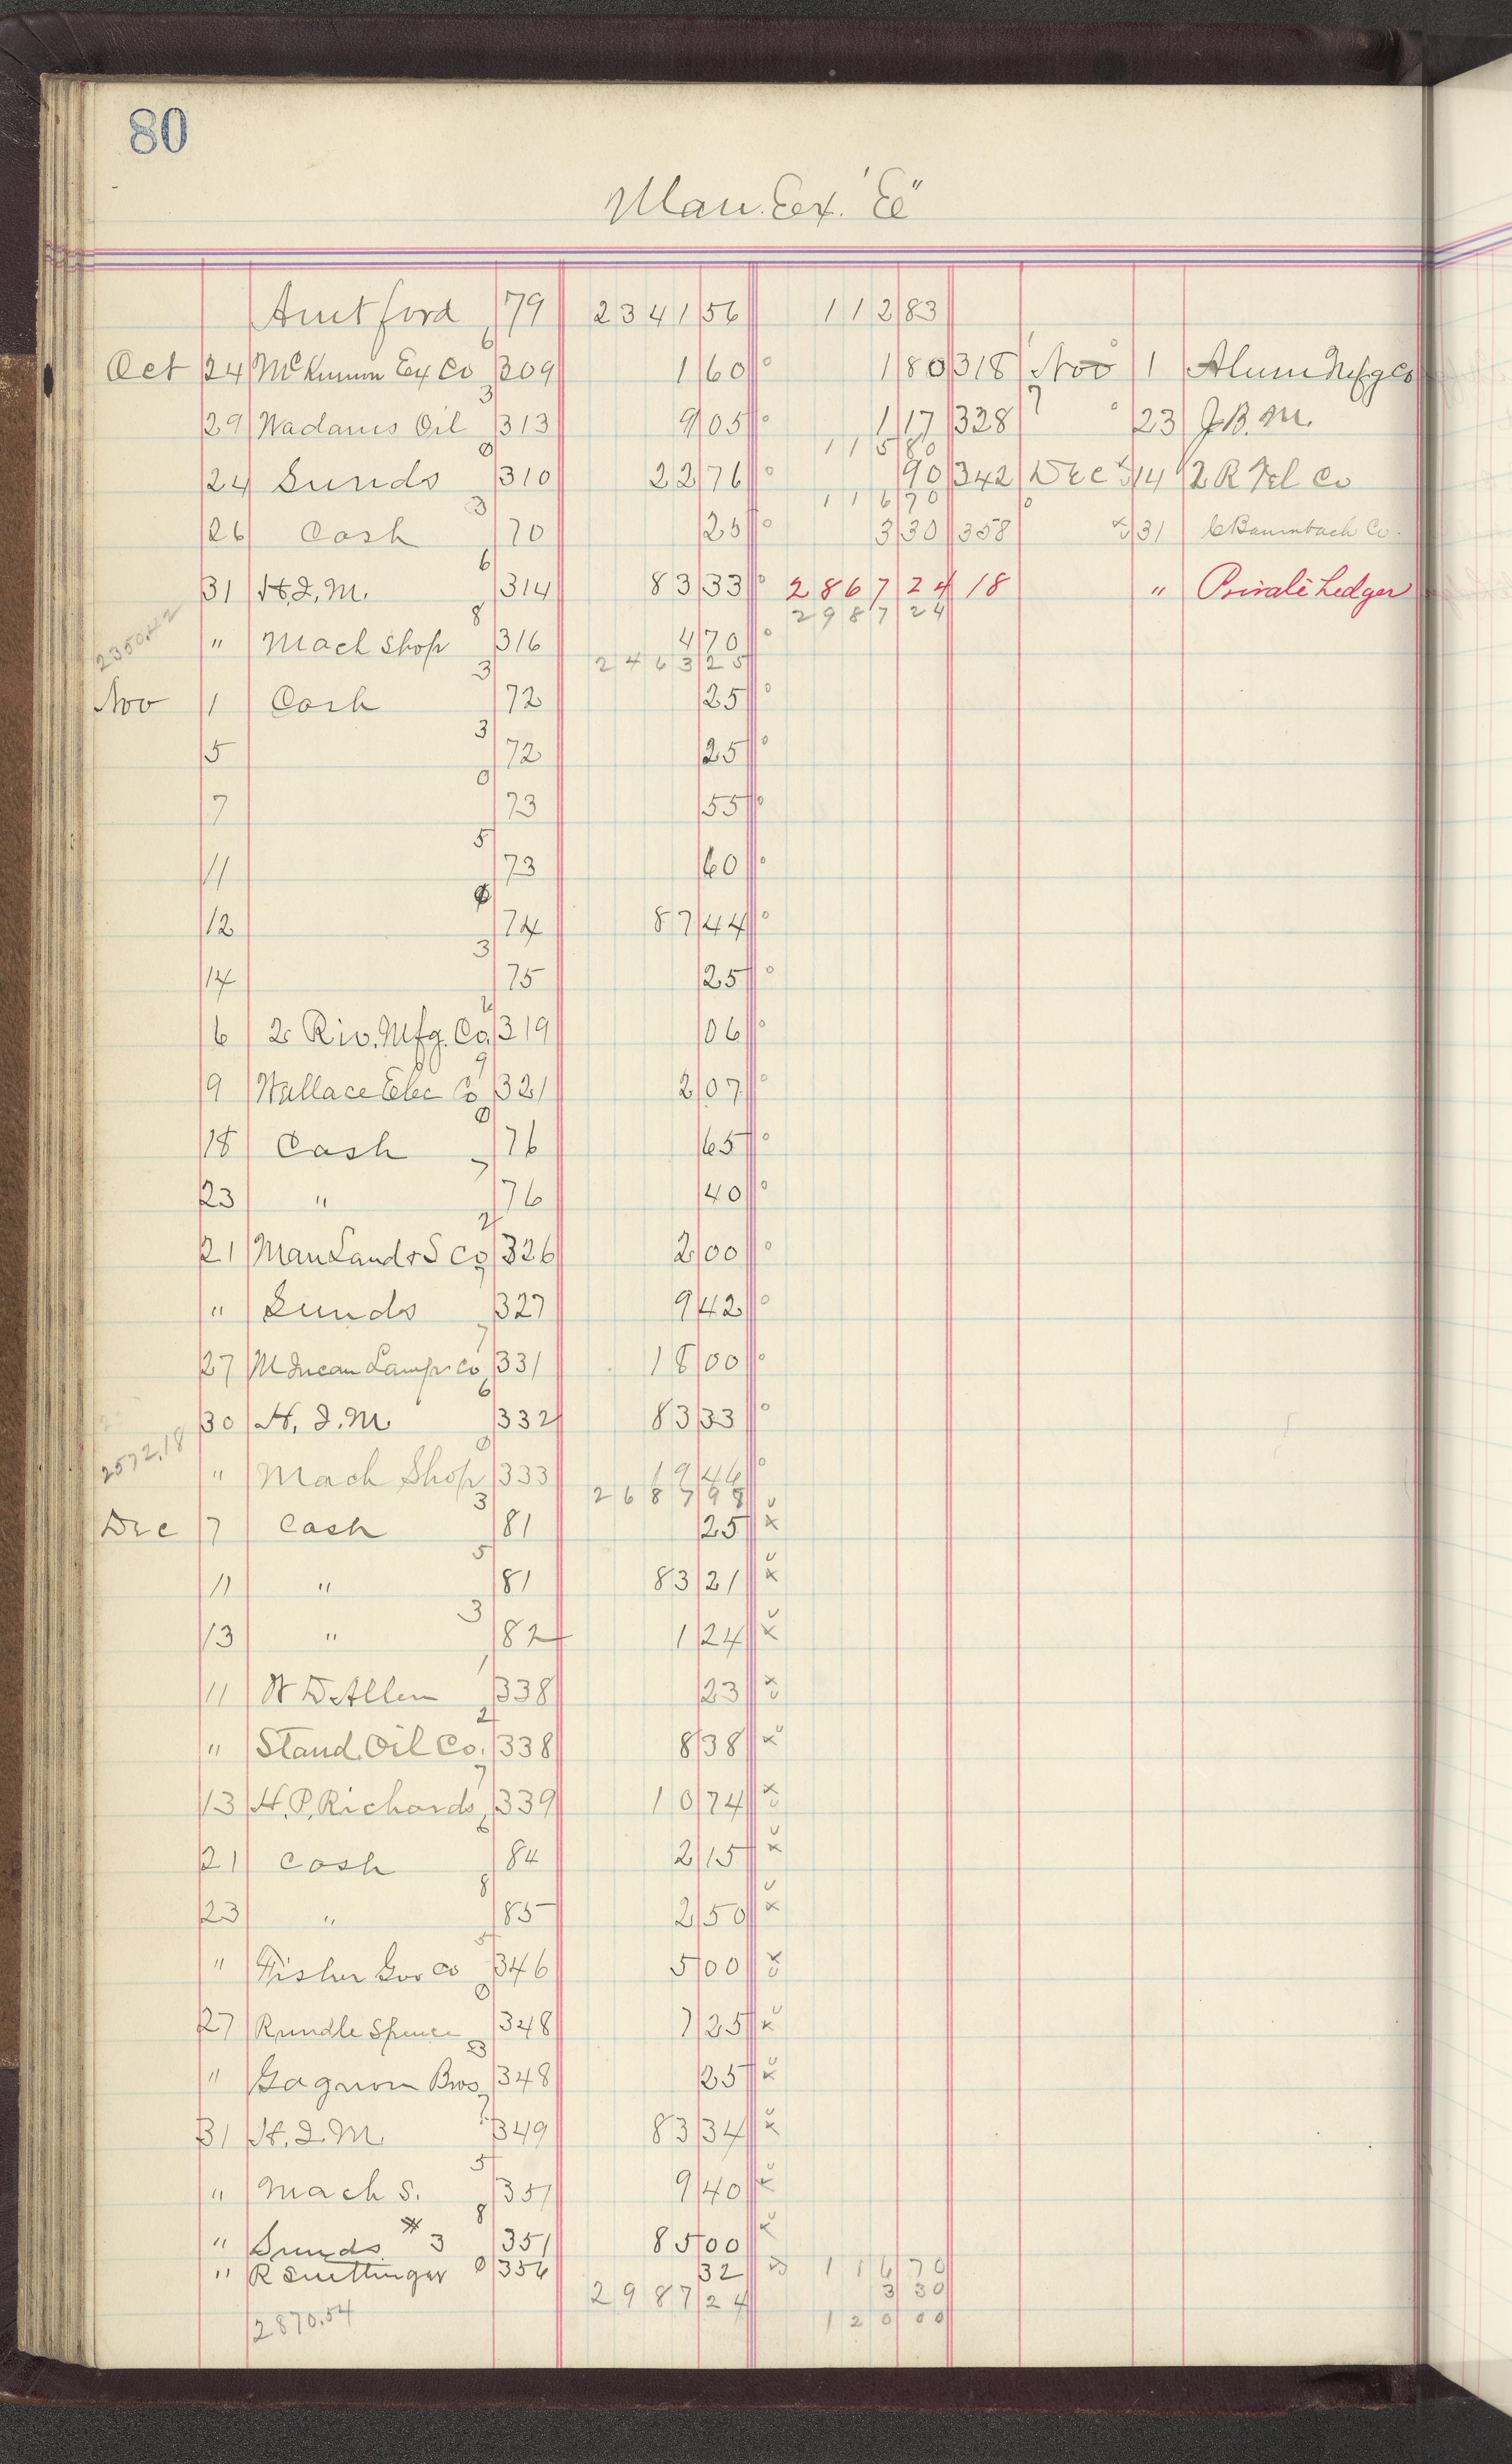 80
Man. Ex. "E"
Amt ford 79 2341 56 112 83
6
Oct 24 McKinnon Ex Co 309 1 60 ° 1 80 318 Nov 1 Alum Mfg Co
3
29 Wadams Oil 313 9 05 ° 1 17 328 23 J.B.M.
0 115 80
24 Sunds 310 22 76 ° 90 342 Dec 14 2 R Tel Co
3 116 70
26 Cash 70 25 ° 3 30 358 31 C Baumbach Co.
6
31 H.I.M. 314 83 33 ° 2867 24 18 " Private Ledger
8 2987 24
2350.42 " Mach Shop 316 4 70 °
3 2463 25
Nov 1 Cash 72 25 °
3
5 72 25 °
0
7 73 55 °
5
11 73 60 °
12 74 87 44 °
3
14 75 25 °
6 2 Riv. Mfg. Co. 319 06 °
9
9 Wallace Elec Co 321 2 07 °
0
18 Cash 76 65 °
7
23 " 76 40 °
2
21 Man Land & S Co 326 2 00 °
" Sunds 327 9 42 °
7
27 Lamp Co 331 18 00 °
6
30 H. I. M. 332 83 33 °
0
2572.18 " Mach Shop 333 19 46 °
3 2687 98
Dec 7 Cash 81 25 x
5
11 " 81 83 21 x
3
13 " 82 1 24 x
1
11 W D Allen 338 23 x
2
" Stand. Oil Co. 338 8 38 x
7
13 H. P. Richards 339 10 74 x
6
21 Cash 84 2 15 x
8
23 " 85 2 50 x
5
" Fisher Gov Co 346 5 00 x
0
27 Rundle Spence 348 7 25 x
3
" Gagnon Bros 348 25 x
31 H. I. M. 349 83 34 x
5
" Mach S. 351 9 40 x
8
" Sunds # 3 351 85 00 x
" R Suettinger 0 356 32 116 70
2987 24 3 30
2870.54 120 00